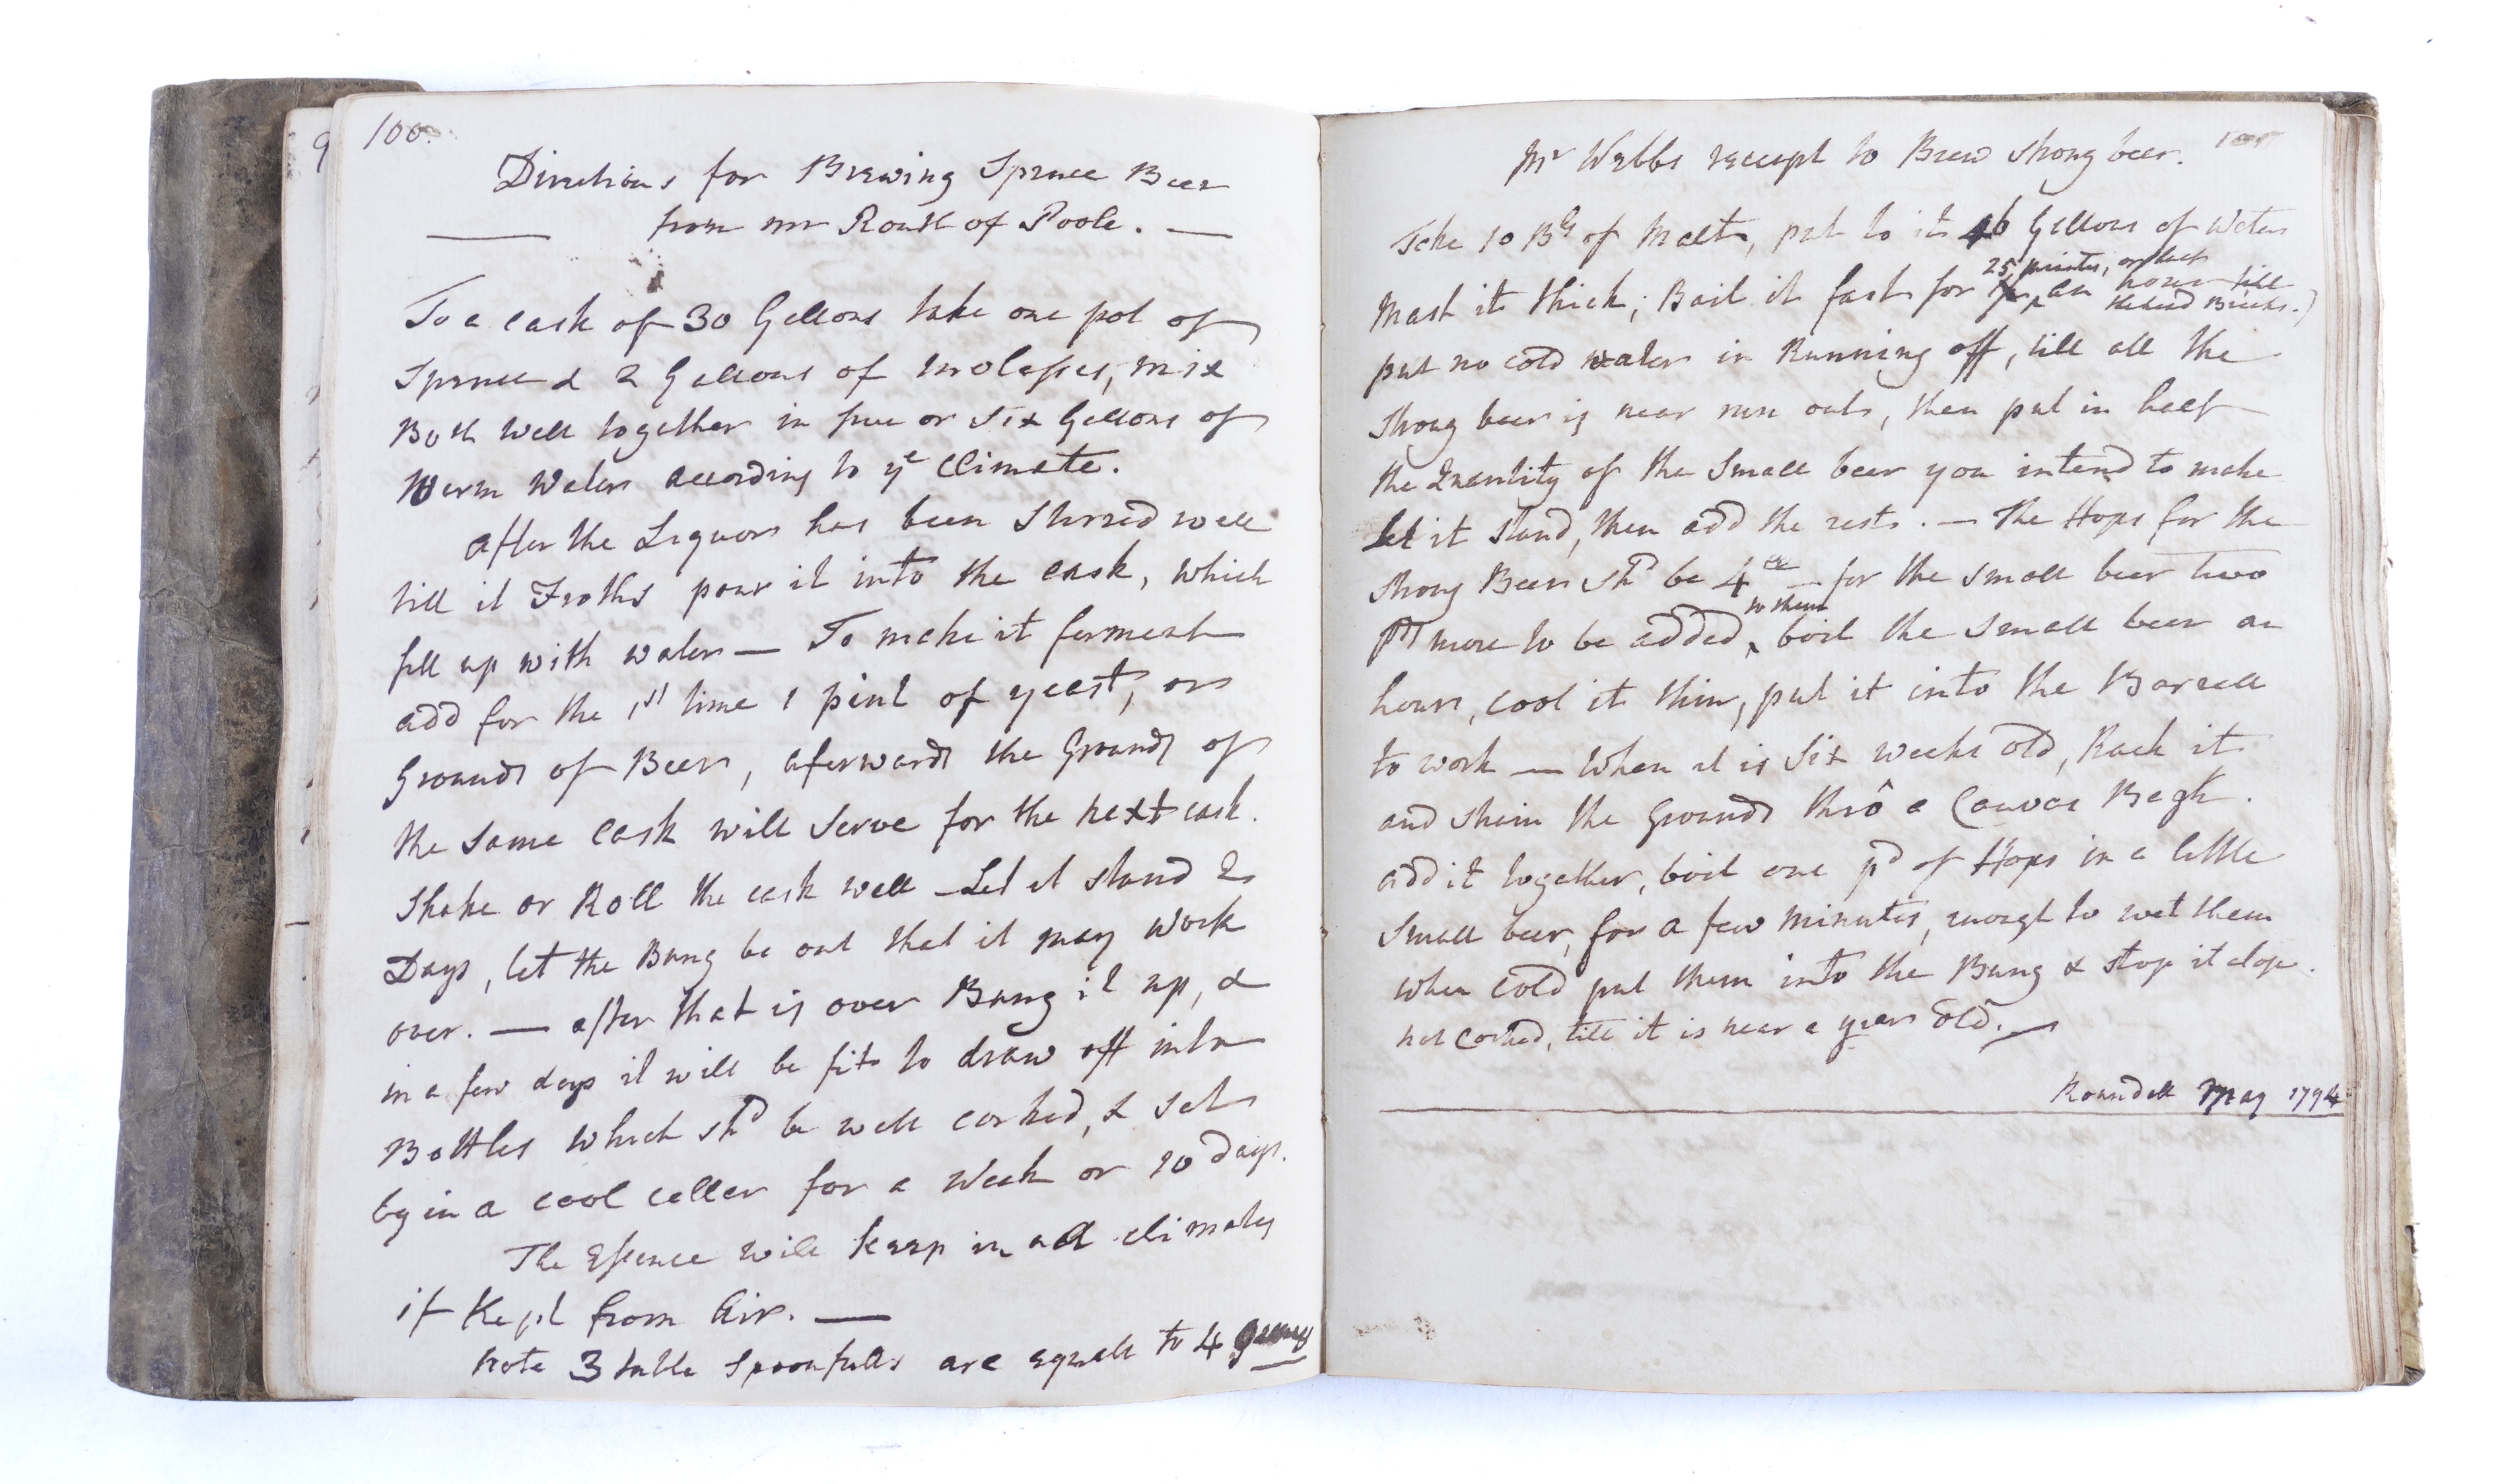 9
100.
Directions for Brewing Spruce Beer
from mr Routh of Poole.
To a cask of 30 Gallons take one pot of
Spruce & 2 Gallons of molasses, mix
Both well together in five or Six Gallons of
Warm Water according to ye Climate.
after the Liquor has been Stirred well
till it Froths pour it into the cask, which
fill up with water — To make it ferment
add for the 1st time 1 pint of yeast, or
Grounds of Beer, aferwards the Grounds of
the same cask will serve for the next cask.
Shake or Roll the cask well — Let it stand 2
Days, let the Bung be out that it may work
over. — after that is over Bung it up, &
in a few days it will be fit to draw off into
Bottles which shd be well corked, & set
by in a cool celler for a Week or 10 days.
The Essence will keep in all climates
if Kept from Air. —
Note 3 table Spoonfulls are equall to 4
Mr Webbs receipt to Brew Strong beer.
Take 10 Bls of Malt, put to it 46 Gallons of Water
Mash it thick; Boil it fast for 25 minutes, or half an hour till the head Breaks.)
put no cold water in Running off, till all the
strong beer is near run out, then put in half
the Quantity of the Small beer you intend to make
let it stand, then add the rest. — The Hops for the
Strong Beer shd be 4 — for the small beer two
more to be added to them, boil the small beer an
hour, cool it thin, put it into the Barrell
to work — When it is Six weeks old, Rack it
and strain the Grounds thrô a Canvas Bagh.
add it together, boil one pd of Hops in a little
Small beer, for a few minutes, enough to wet them
when cold put them into the Bung & stop it close.
not corked, till it is near a year old. —
Roundell May 1794